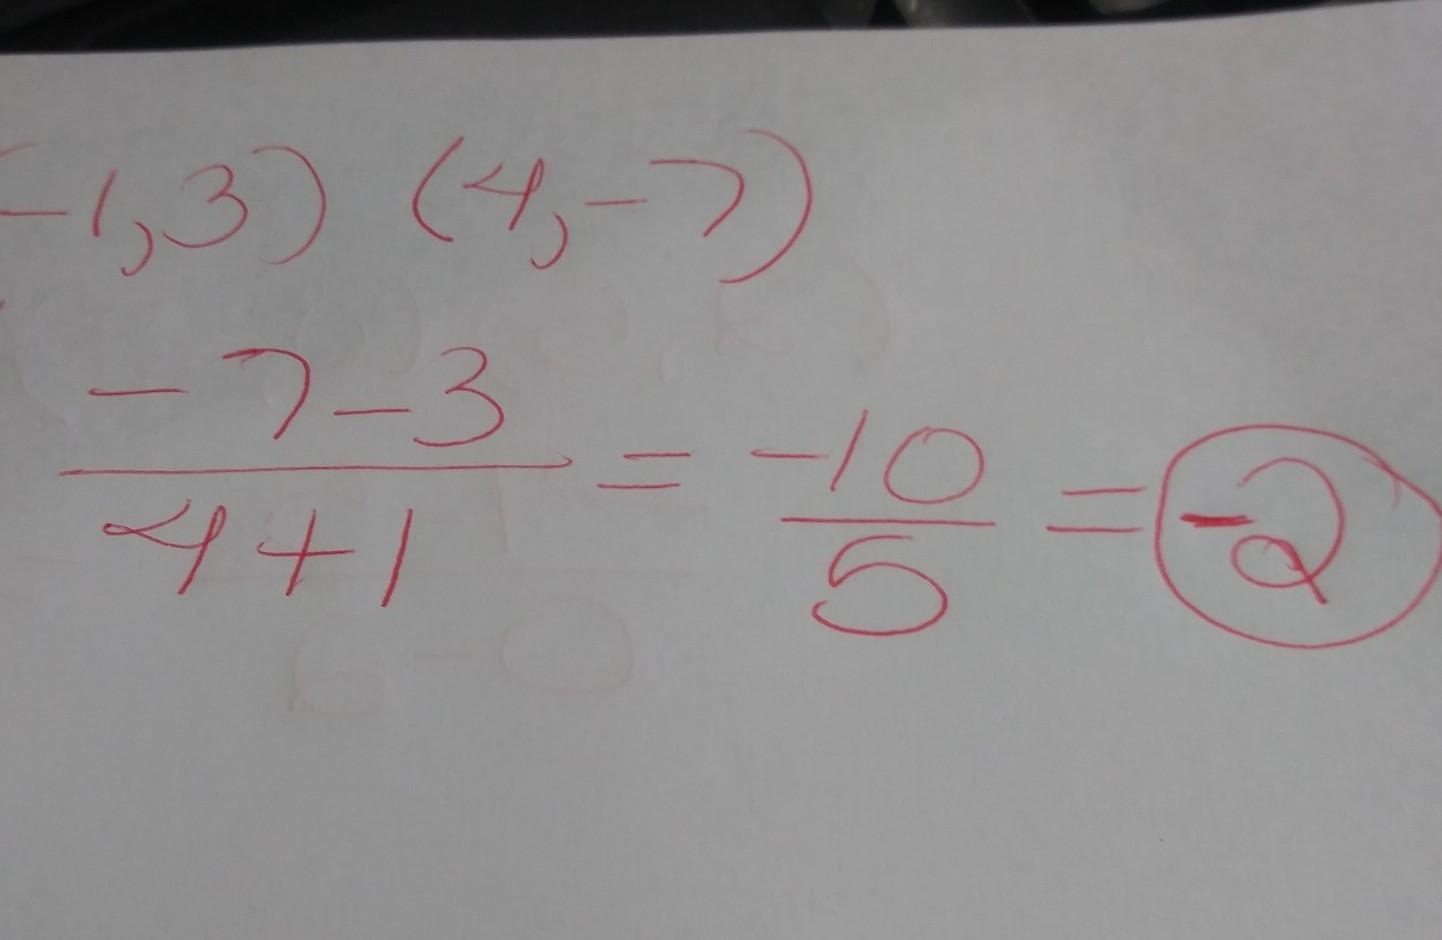 (-1,3) (4,-7)
-7-3
4+1 = -10/5 = -2